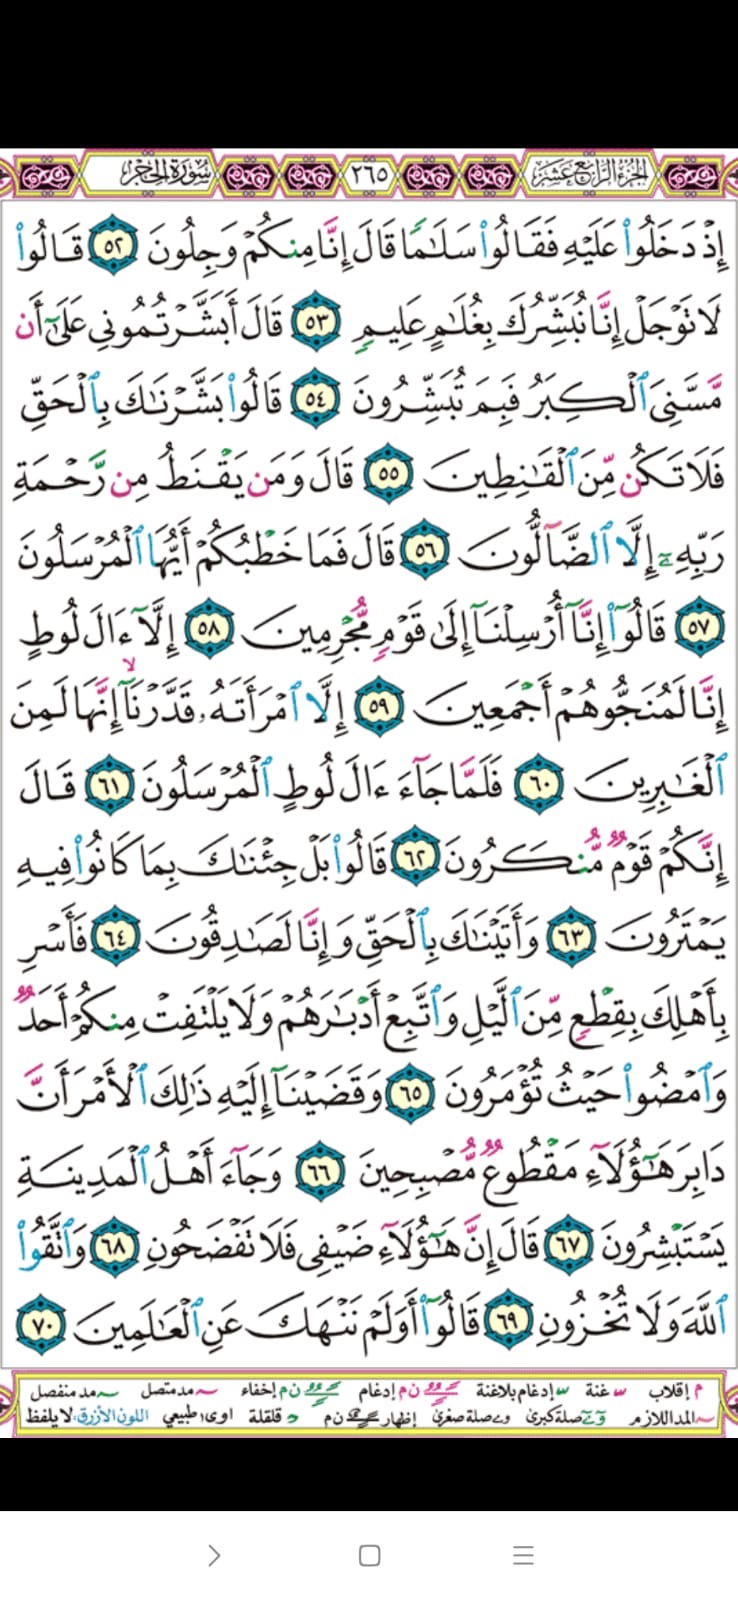 الجزء الرابع عشر ٢٦٥ سورة الحجر
إِذْ دَخَلُوا۟ عَلَيْهِ فَقَالُوا۟ سَلَـٰمًا قَالَ إِنَّا مِنكُمْ وَجِلُونَ ٥٢ قَالُوا۟
لَا تَوْجَلْ إِنَّا نُبَشِّرُكَ بِغُلَـٰمٍ عَلِيمٍ ٥٣ قَالَ أَبَشَّرْتُمُونِى عَلَىٰٓ أَن
مَّسَّنِىَ ٱلْكِبَرُ فَبِمَ تُبَشِّرُونَ ٥٤ قَالُوا۟ بَشَّرْنَـٰكَ بِٱلْحَقِّ
فَلَا تَكُن مِّنَ ٱلْقَـٰنِطِينَ ٥٥ قَالَ وَمَن يَقْنَطُ مِن رَّحْمَةِ
رَبِّهِۦٓ إِلَّا ٱلضَّآلُّونَ ٥٦ قَالَ فَمَا خَطْبُكُمْ أَيُّهَا ٱلْمُرْسَلُونَ
٥٧ قَالُوٓا۟ إِنَّآ أُرْسِلْنَآ إِلَىٰ قَوْمٍ مُّجْرِمِينَ ٥٨ إِلَّآ ءَالَ لُوطٍ
إِنَّا لَمُنَجُّوهُمْ أَجْمَعِينَ ٥٩ إِلَّا ٱمْرَأَتَهُۥ قَدَّرْنَآ ۙ إِنَّهَا لَمِنَ
ٱلْغَـٰبِرِينَ ٦٠ فَلَمَّا جَآءَ ءَالَ لُوطٍ ٱلْمُرْسَلُونَ ٦١ قَالَ
إِنَّكُمْ قَوْمٌ مُّنكَرُونَ ٦٢ قَالُوا۟ بَلْ جِئْنَـٰكَ بِمَا كَانُوا۟ فِيهِ
يَمْتَرُونَ ٦٣ وَأَتَيْنَـٰكَ بِٱلْحَقِّ وَإِنَّا لَصَـٰدِقُونَ ٦٤ فَأَسْرِ
بِأَهْلِكَ بِقِطْعٍ مِّنَ ٱلَّيْلِ وَٱتَّبِعْ أَدْبَـٰرَهُمْ وَلَا يَلْتَفِتْ مِنكُمْ أَحَدٌ
وَٱمْضُوا۟ حَيْثُ تُؤْمَرُونَ ٦٥ وَقَضَيْنَآ إِلَيْهِ ذَٰلِكَ ٱلْأَمْرَ أَنَّ
دَابِرَ هَـٰٓؤُلَآءِ مَقْطُوعٌ مُّصْبِحِينَ ٦٦ وَجَآءَ أَهْلُ ٱلْمَدِينَةِ
يَسْتَبْشِرُونَ ٦٧ قَالَ إِنَّ هَـٰٓؤُلَآءِ ضَيْفِى فَلَا تَفْضَحُونِ ٦٨ وَٱتَّقُوا۟
ٱللَّهَ وَلَا تُخْزُونِ ٦٩ قَالُوٓا۟ أَوَلَمْ نَنْهَكَ عَنِ ٱلْعَـٰلَمِينَ ٧٠
م إقلاب غنة إدغام بلاغنة ن م إدغام ن م إخفاء مد متصل مد منفصل
المد اللازم صلة كبرى صلة صغرى إظهار ن م قلقلة اوى طبيعي اللون الأزرق: لا يلفظ